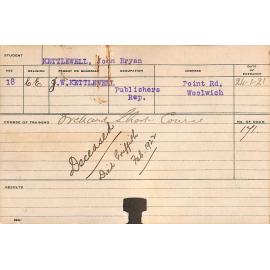 STUDENT
KETTLEWELL, John Bryan
AGE RELIGION PARENT OR GUARDIAN OCCUPATION ADDRESS DATE OF ENTRANCE
18 C.E. J.W. KETTLEWELL Publishers Rep. Point Rd, Woolwich 24-1-21
COURSE OF TRAINING Orchard Short Course No. OF EXAM. 171.
Deceased
Died Griffith
Feb. 1922
RESULTS